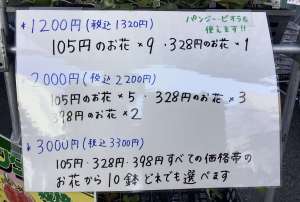 ¥1200円(税込1320円)
パンジー・ビオラも
使えます!!
105円のお花×9・328円のお花×1
2000円(税込2200円)
105円のお花×5・328円のお花×3
398円のお花×2
¥3000円(税込3300円)
105円・328円・398円すべての価格帯の
お花から10鉢どれでも選べます